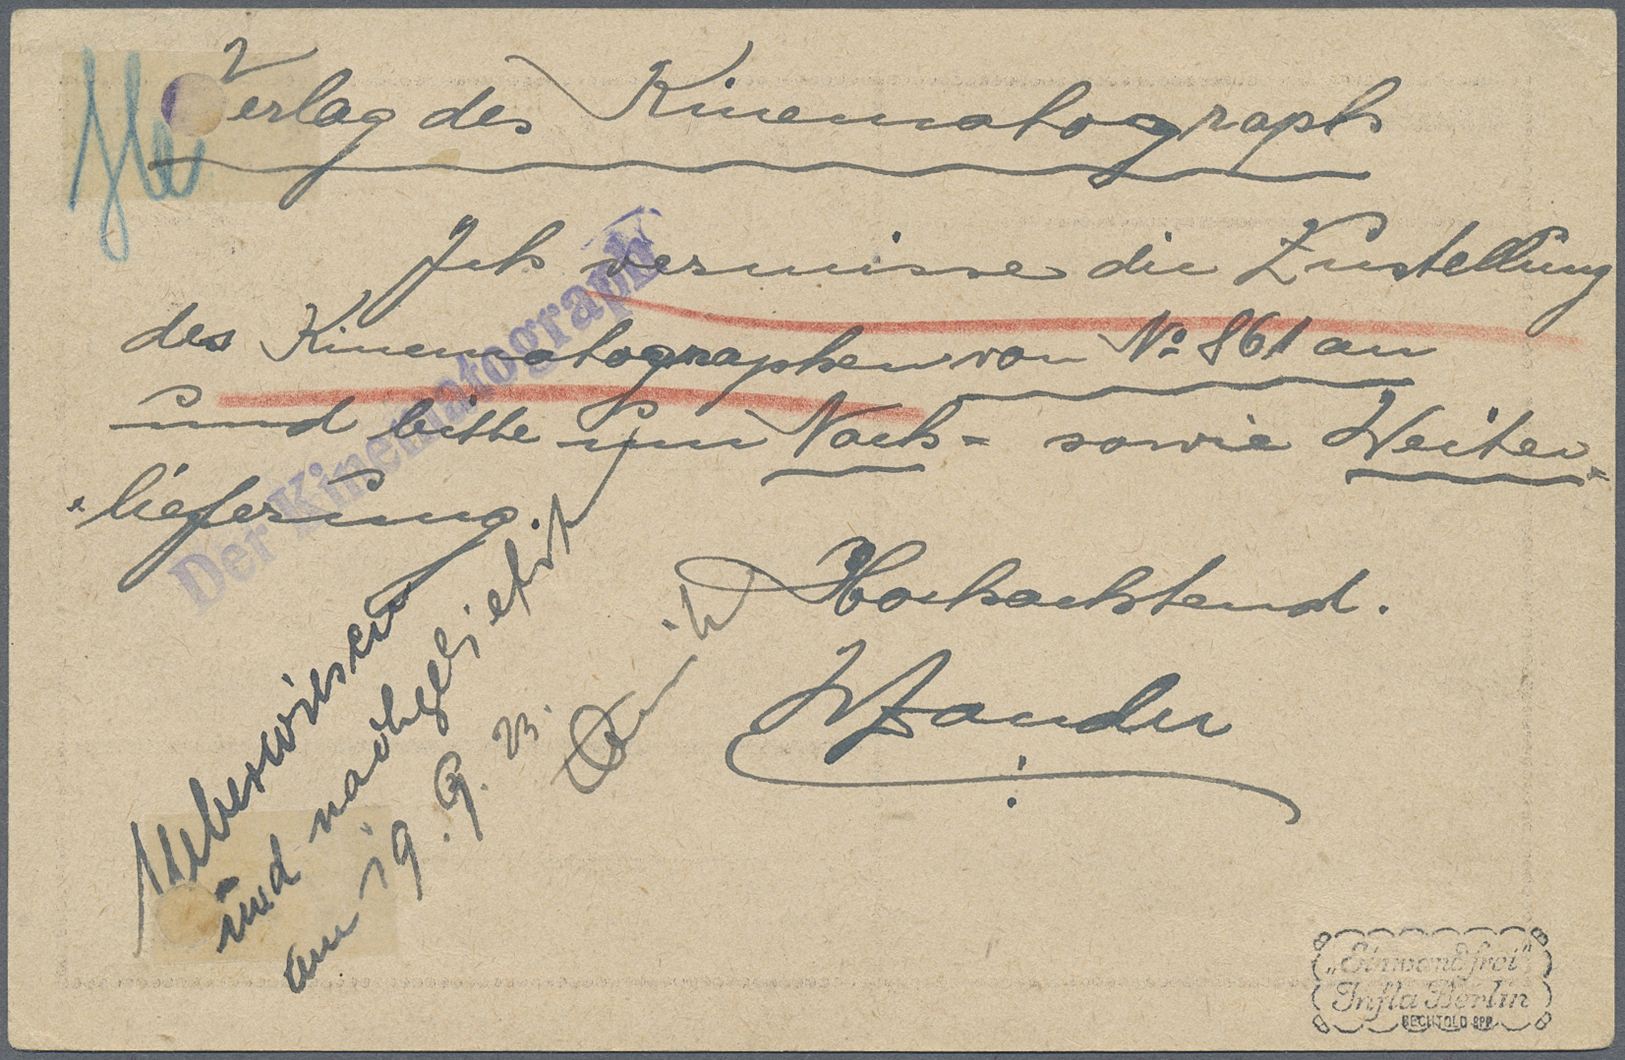 Verlag des Kinematograph
Ich vermisse die Zustellung
des Kinematographen von No 861 an
und bitte um Nach- sowie Weiter-
-lieferung.
Hochachtend.
Der Kinematograph
Ueberwiesen
und nachgeliefert
am 19. 9. 23.
"Einwandfrei"
Infla Berlin
BECHTOLD BPP